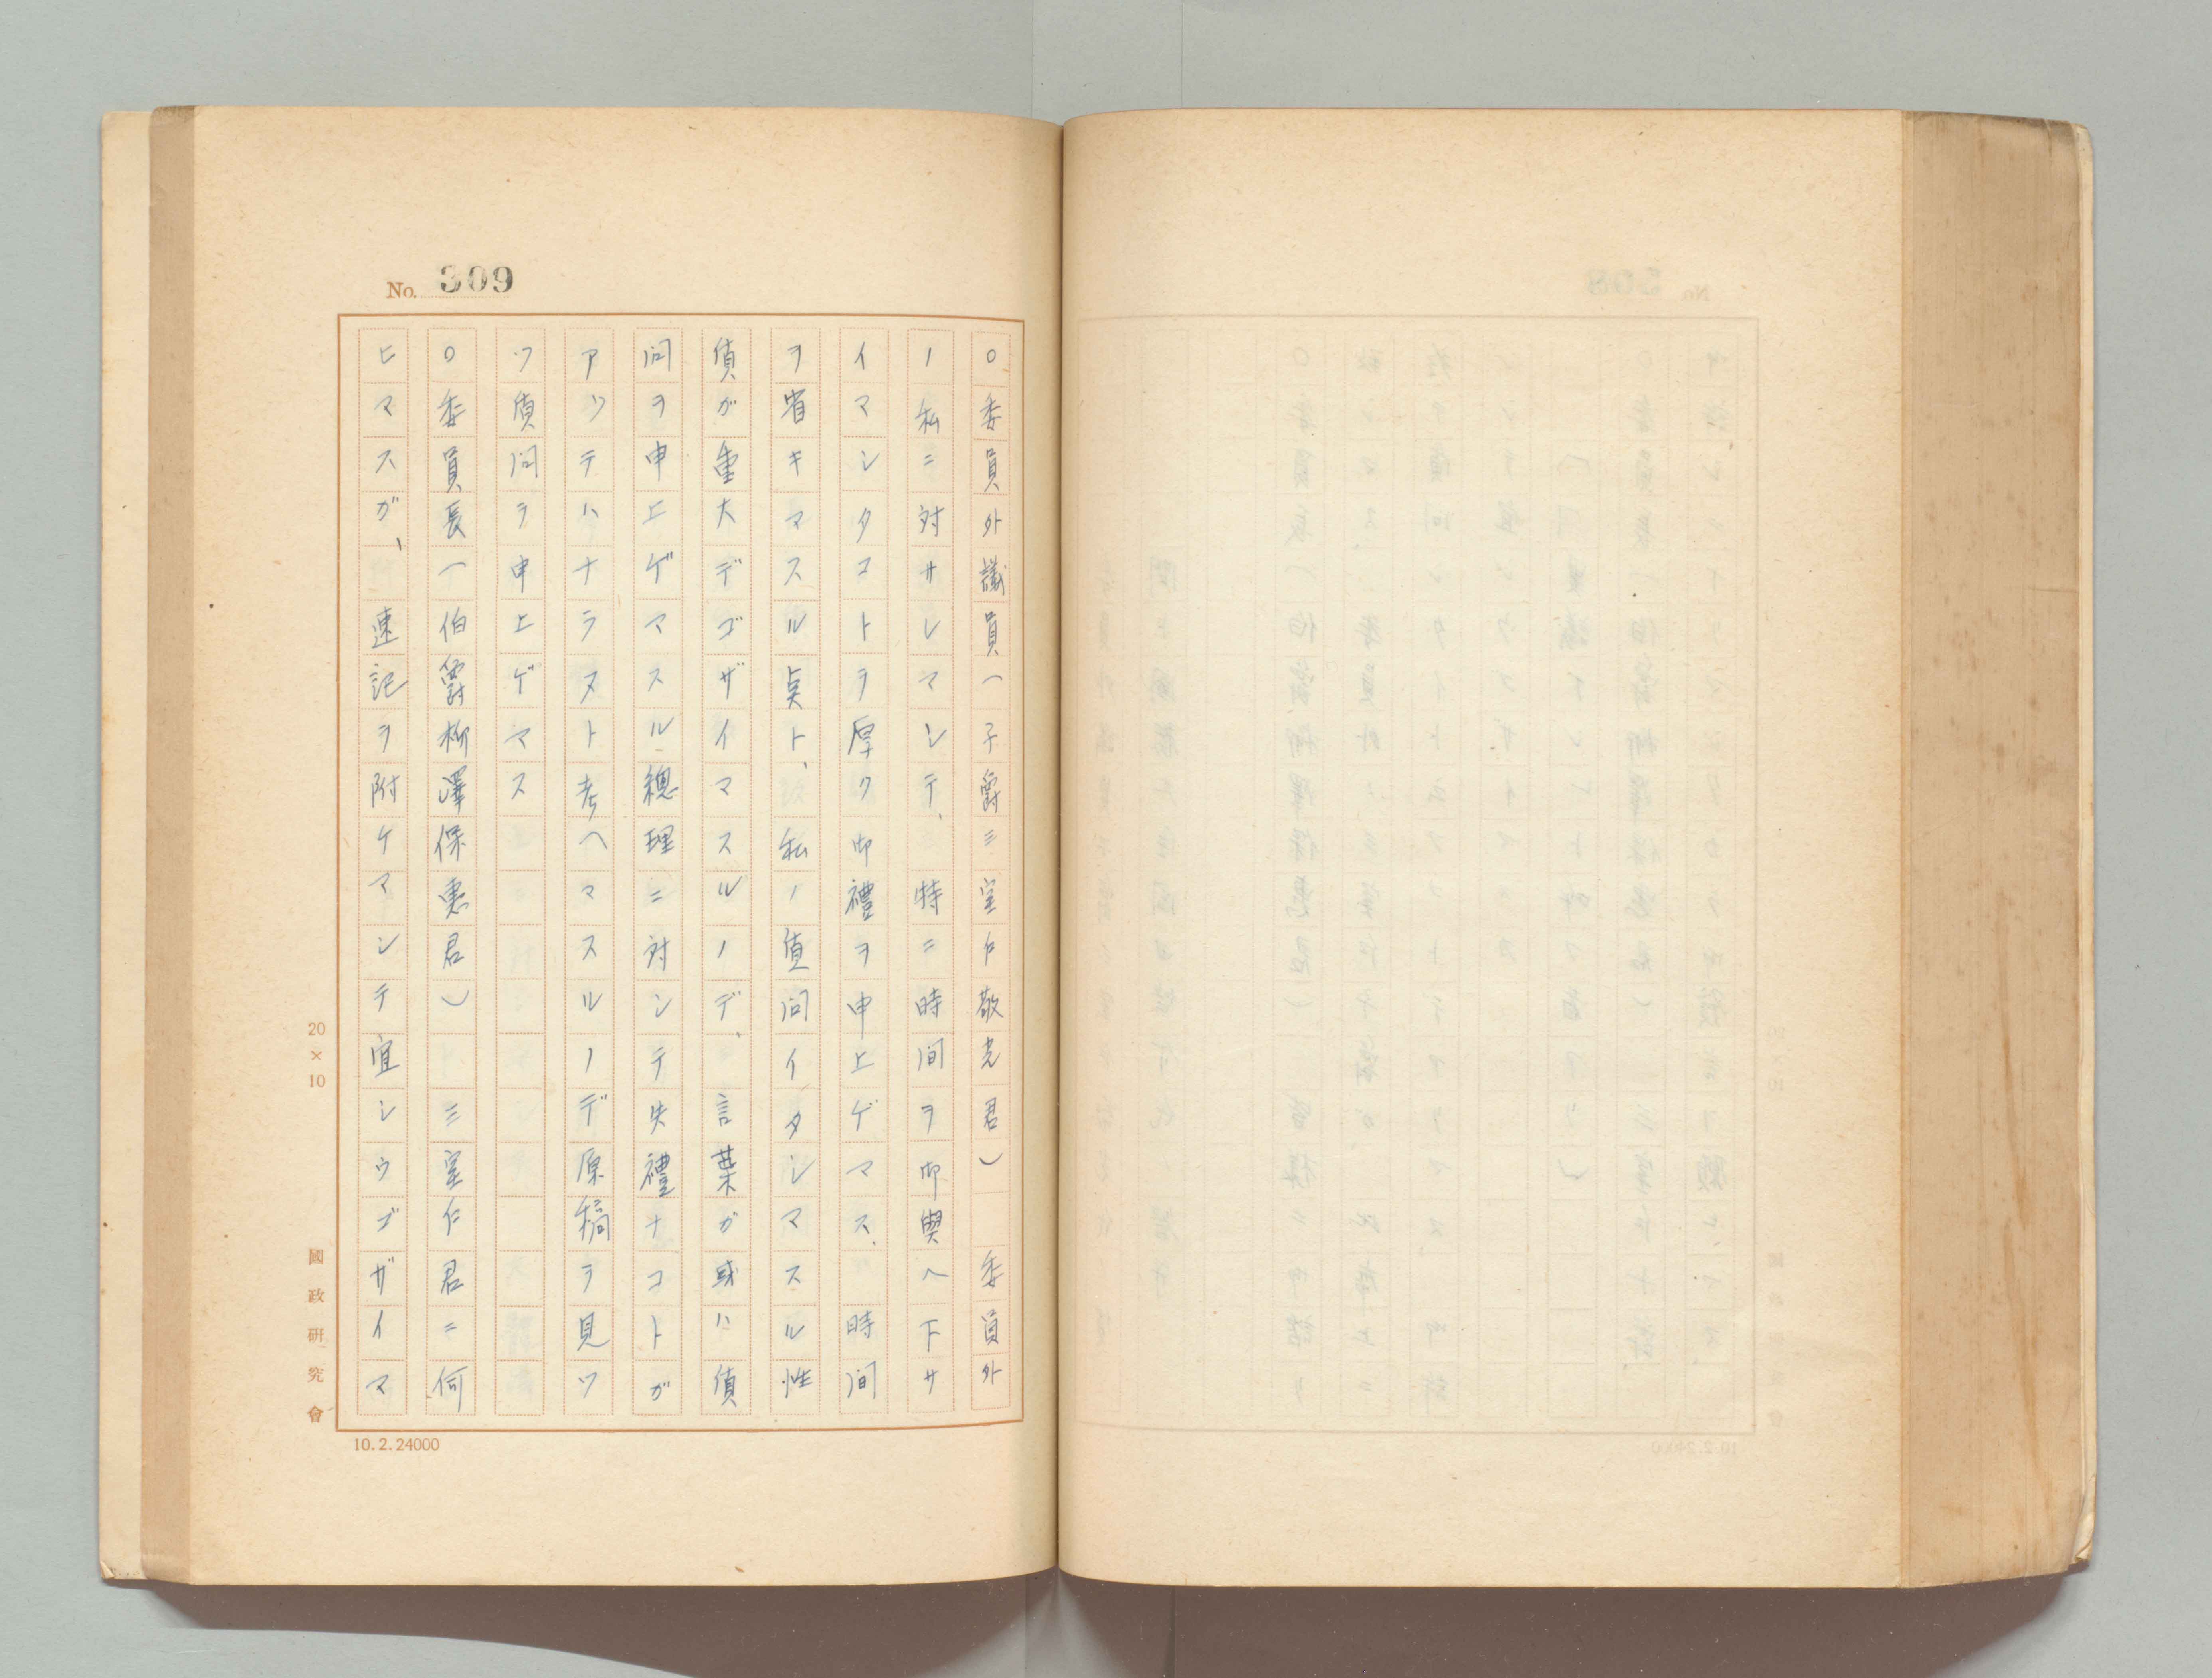 No. 309
○委員外議員(子爵三室戸敬光君) 委員外
ノ私ニ対サレマシテ、特ニ時間ヲ御與ヘ下サ
イマシタコトヲ厚ク御禮ヲ申上ゲマス、時間
ヲ省キマスル点ト、私ノ質問イタシマスル性
質ガ重大デゴザイマスルノデ、言葉ガ或ハ質
問ヲ申上ゲマスル総理ニ対シテ失禮ナコトガ
アツテハナラヌト考ヘマスルノデ原稿ヲ見ツ
ツ質問ヲ申上ゲマス
○委員長(伯爵柳澤保惠君) 三室戸君ニ伺
ヒマスガ、速記ヲ附ケマシテ宜シウゴザイマ
20×10
國政研究會
10.2.24000